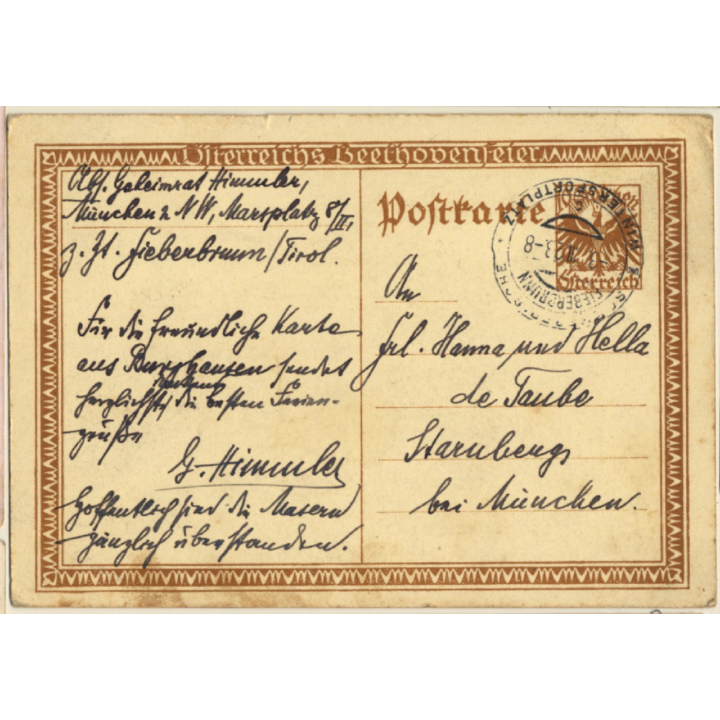 Österreichs Beethovenfeier
Abs. Geheimrat Himmler,
München 2 NW, Marsplatz 8/II,
z. Zt. Fieberbrunn/Tirol.
Für die freundliche Karte
aus Burghausen sendet
herzlichst die besten Ferien-
grüße
G. Himmler
Hoffentlich sind die Masern
gänzlich überstanden.
Postkarte
Österreich
WINTERSPORTPLATZ
FIEBERBRUNN
An
Frl. Hanna und Hella
de Taube
Starnberg
bei München.